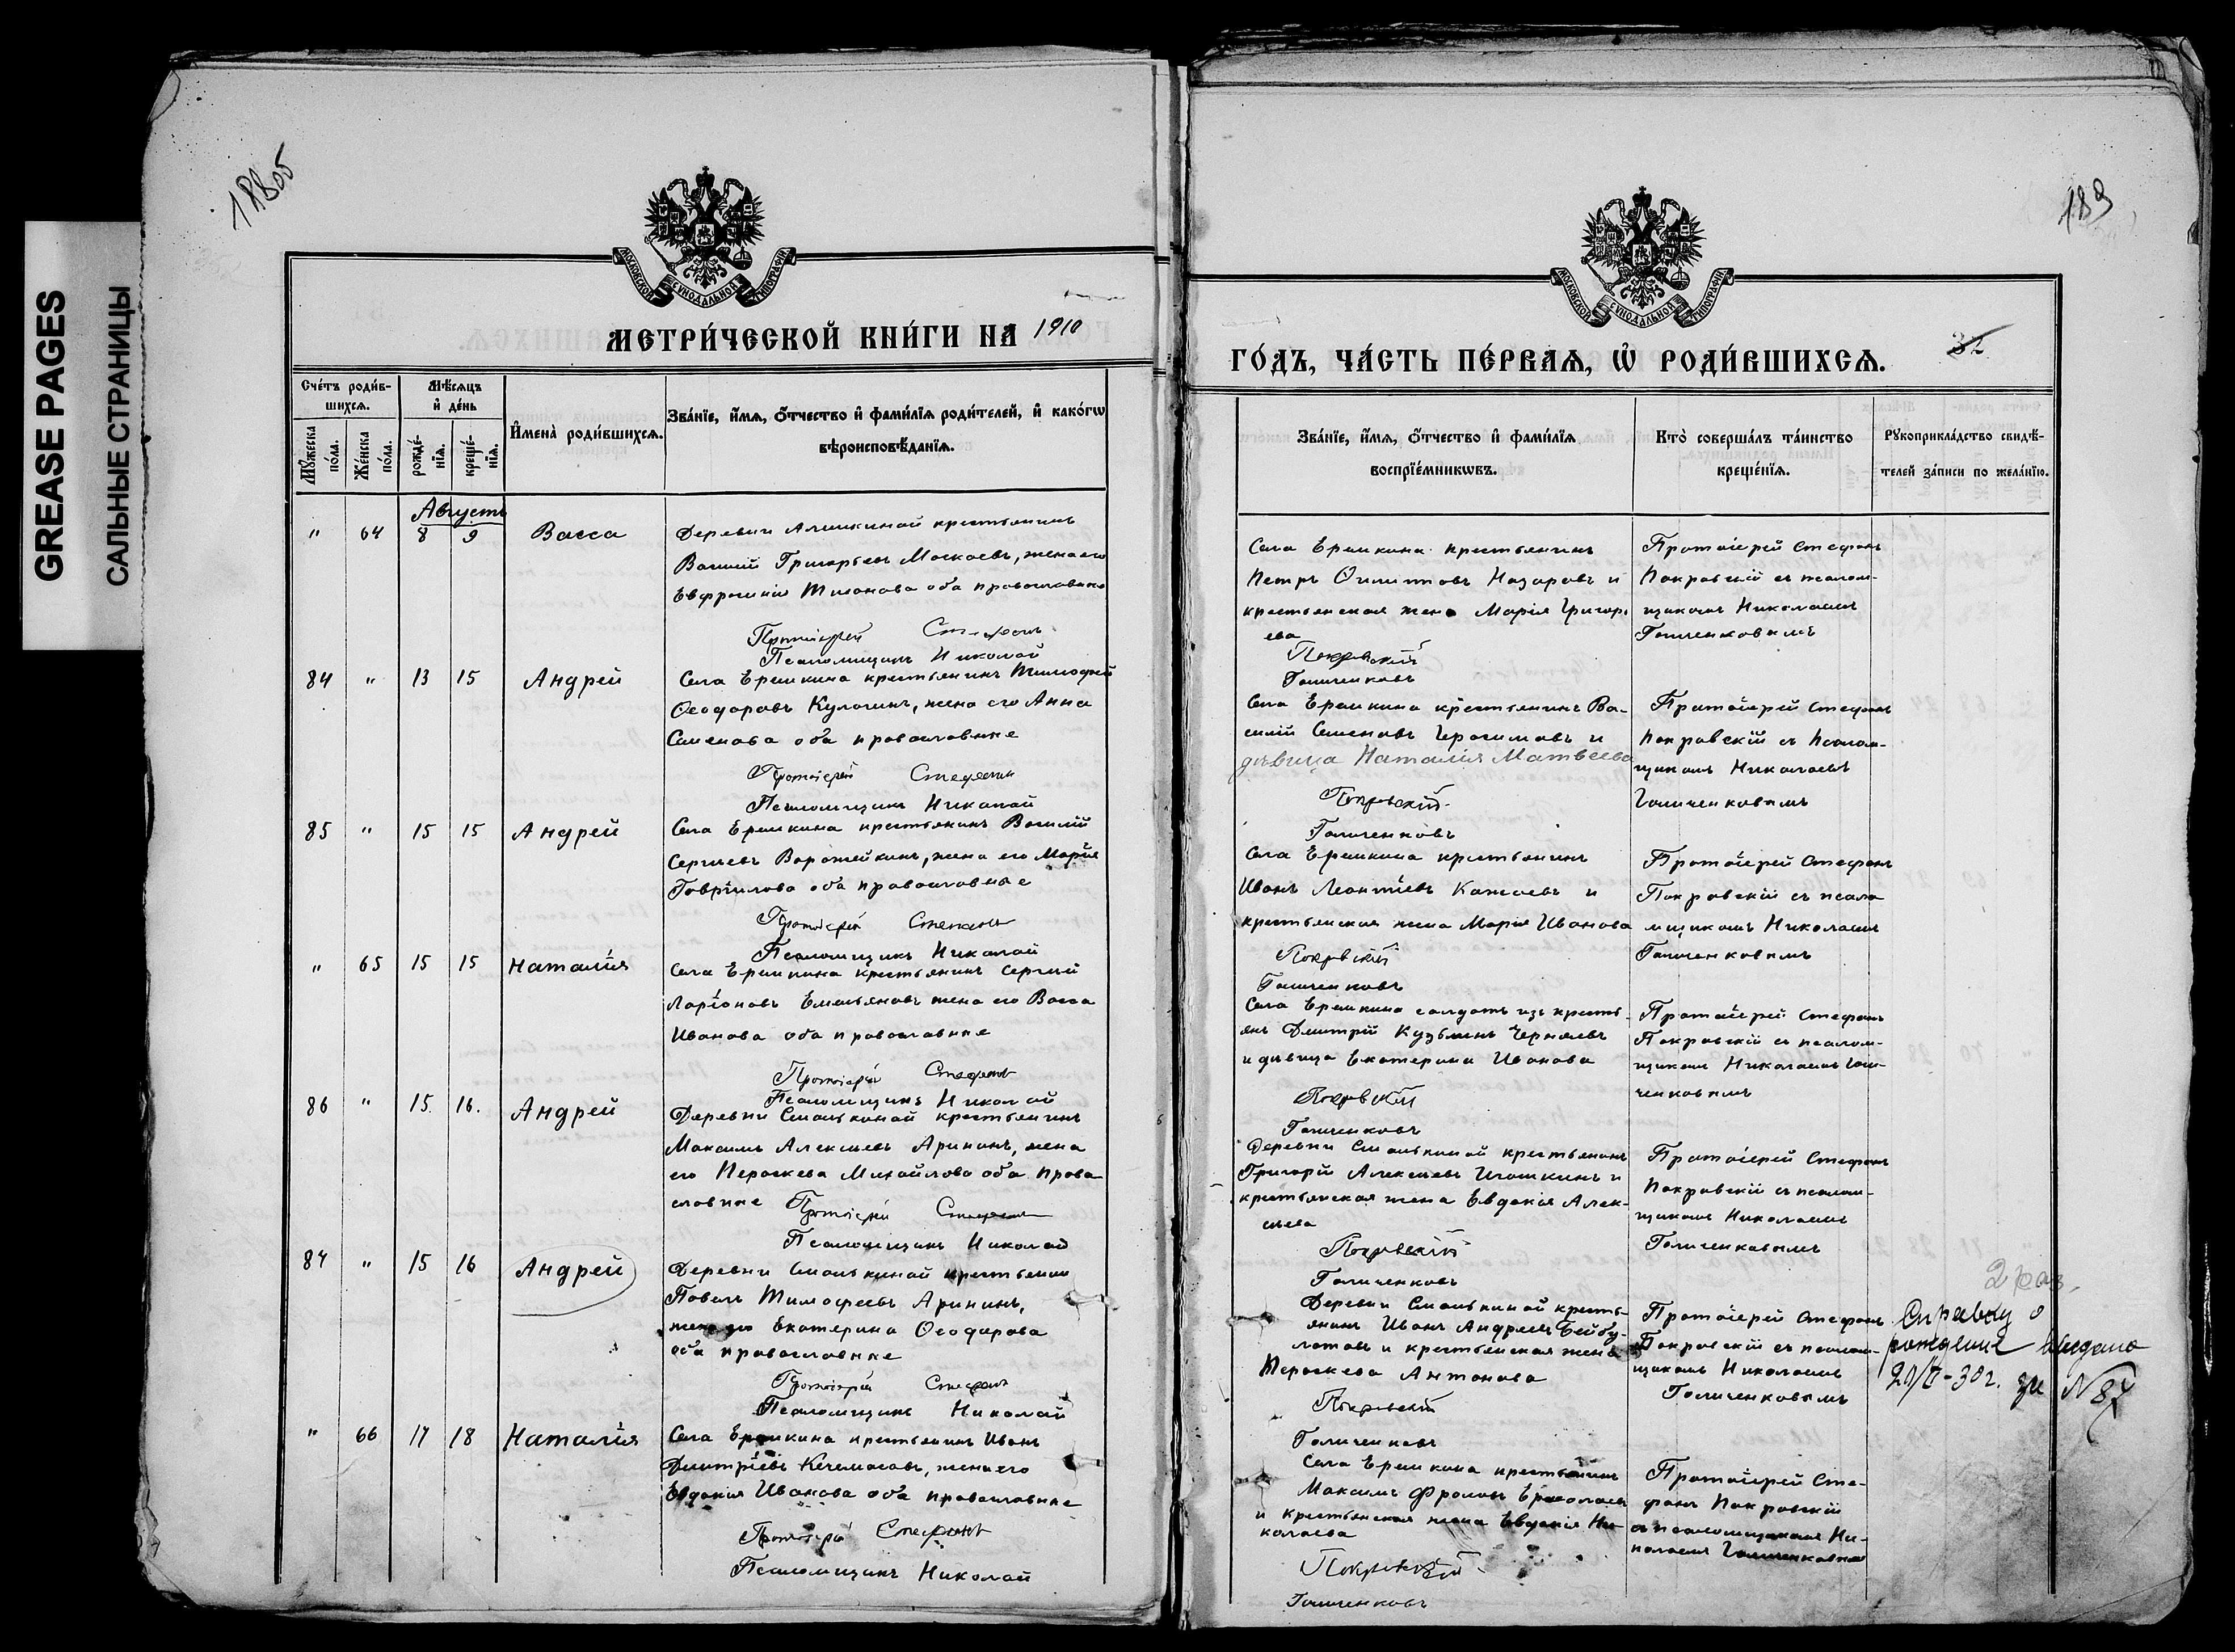 GREASE PAGES
САЛЬНЫЕ СТРАНИЦЫ
188об
МОСКОВСКОЙ СУНОДАЛЬНОЙ ТИПОГРАФІИ
МЕТРИ́ЧЕСКОЙ КНИ́ГИ НА 1910
Счéтъ роди́в-
шихсѧ.
Мꙋ́жеска по́ла.
Же́нска по́ла.
Мѣ́сѧцъ
и҆ де́нь
рожде́-
нїѧ.
креще́-
нїѧ.
И҆мена̀ роди́вшихсѧ.
Зва́нїе, и҆́мѧ, ѻ҆́тчество и҆ фами́лїѧ роди́телей, и҆ како́гѡ
вѣроисповѣ́данїѧ.
Августъ
" 64 8 9 Васса
Деревни Алешкиной крестьянинъ
Василій Григорьевъ Москаевъ, жена его
Евфросинія Тихонова оба православные
Протоіерей Стефанъ
Псаломщикъ Николай
84 " 13 15 Андрей
Села Еремкина крестьянинъ Тимофей
Ѳеодоровъ Кулагинъ, жена его Анна
Семенова оба православные
Протоіерей Стефанъ
Псаломщикъ Николай
85 " 15 15 Андрей
Села Еремкина крестьянинъ Василій
Сергѣевъ Ворожейкинъ, жена его Марія
Гаврилова оба православные
Протоіерей Стефанъ
Псаломщикъ Николай
" 65 15 15 Наталія
Села Еремкина крестьянинъ Сергѣй
Ларіоновъ Емельяновъ жена его Васса
Иванова оба православные
Протоіерей Стефанъ
Псаломщикъ Николай
86 " 15. 16. Андрей
Деревни Смолькиной крестьянинъ
Максимъ Алексѣевъ Арининъ, жена
его Пераскева Михайлова оба право
славные
Протоіерей Стефанъ
Псаломщикъ Николай
87 " 15 16 Андрей
Деревни Смолькиной крестьянин
Павелъ Тимофеевъ Арининъ,
жена его Екатерина Ѳеодорова
оба православные
Протоіерей Стефанъ
Псаломщикъ Николай
" 66 17 18 Наталія
Села Еремкина крестьянинъ Иванъ
Дмитріевъ Кечемасовъ, жена его
Евдокия Иванова оба православные
Протоіерей Стефанъ
Псаломщикъ Николай
189
МОСКОВСКОЙ СУНОДАЛЬНОЙ ТИПОГРАФІИ
ГО́ДЪ, ЧА́СТЬ ПЕ́РВАѦ, Ѡ҆ РОДИ́ВШИХСѦ.
32
Зва́нїе, и҆́мѧ, ѻ҆́тчество и҆ фами́лїѧ
воспрїе́мникѡвъ.
Кто̀ соверша́лъ та́инство
креще́нїѧ.
Рꙋкоприкла́дство свидѣ́-
телей за́писи по жела́нїю.
Села Еремкина крестьянинъ
Петръ Филиповъ Назаровъ и
крестьянская жена Марія Григорь
ева
Покровскій
Голиченковъ
Протоіерей Стефанъ
Покровскій съ псалом-
щикомъ Николаемъ
Голиченковымъ
Села Еремкина крестьянинъ Ва-
силій Семеновъ Герасимовъ и
дѣвица Наталія Матвѣева
Покровскій
Голиченковъ
Протоіерей Стефанъ
Покровскій съ Псалом-
щикомъ Николаемъ
Голиченковымъ
Села Еремкина крестьянинъ
Иванъ Леонтіевъ Кажаевъ и
крестьянская жена Марія Иванова
Покровскій
Голиченковъ
Протоіерей Стефанъ
Покровскій съ псало
мщикомъ Николаемъ
Голиченковымъ
Села Еремкина солдатъ изъ кресть-
янъ Дмитрій Кузьминъ Черняевъ
и дѣвица Екатерина Иванова
Покровскій
Голиченковъ
Протоіерей Стефанъ
Покровскій съ псалом-
щикомъ Николаемъ Голи-
ченковымъ
Деревни Смолькиной крестьянинъ
Григорій Алексѣевъ Игошкинъ и
крестьянская жена Евдокія Алек-
сѣева
Покровскій
Голиченковъ
Протоіерей Стефанъ
Покровскій съ псалом-
щикомъ Николаемъ
Голиченковымъ
Деревни Смолькиной кресть-
янинъ Иванъ Андреевъ Бейбу-
латовъ и крестьянская жена
Пераскева Антонова
Покровскій
Голиченковъ
Протоіерей Стефанъ
Покровскій съ псалом-
щикомъ Николаемъ
Голиченковымъ
2 раз.
Справку о
рождении выдано
за № 87
Села Еремкина крестьянинъ
Максимъ Фроловъ Ермолаевъ
и крестьянская жена Евдокія Ни-
колаева
Покровскій
Голиченковъ
Протоіерей Сте-
фанъ Покровскій
съ псаломщикомъ Ни-
колаемъ Голиченковымъ